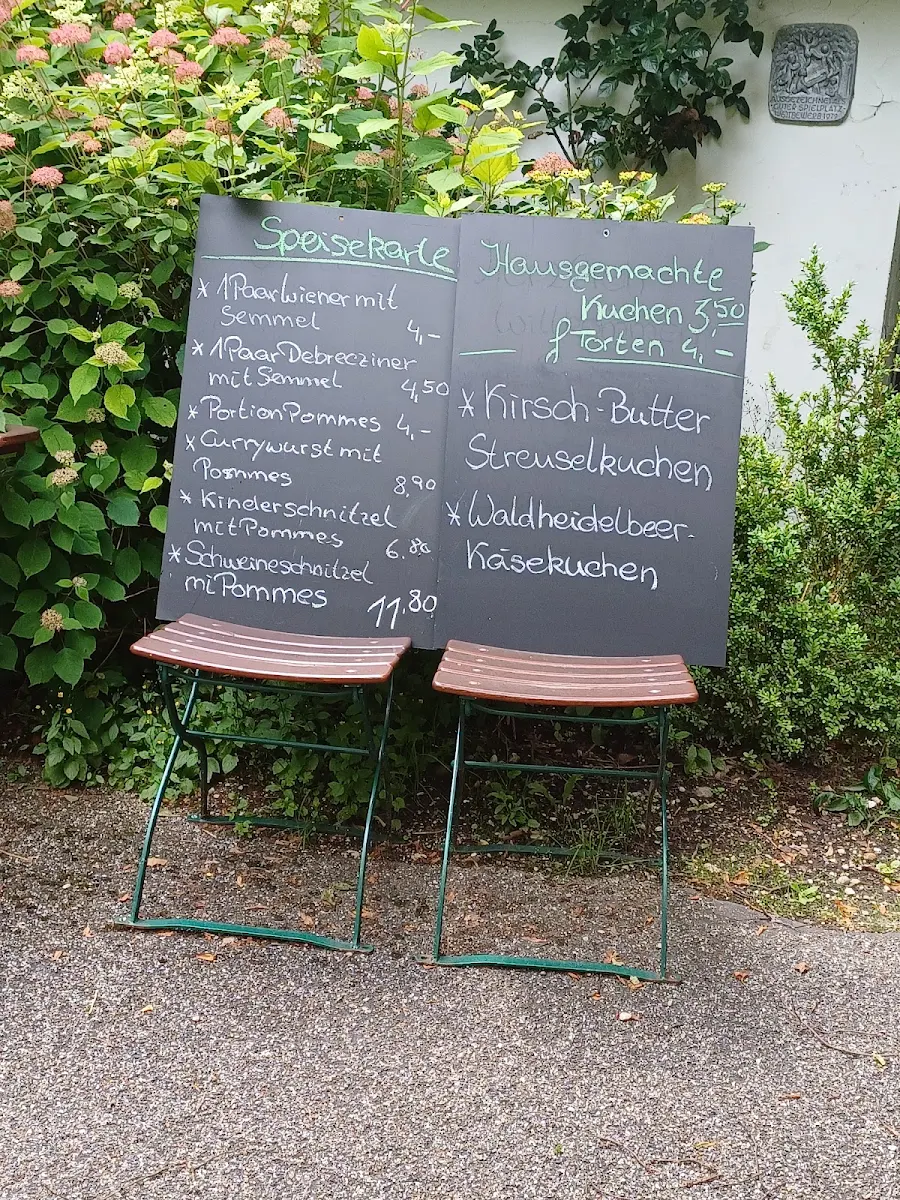 Speisekarte
* 1 Paar Wiener mit
Semmel 4,-
* 1 Paar Debrecziner
mit Semmel 4,50
* Portion Pommes 4,-
* Currywurst mit
Pommes 8,90
* Kinderschnitzel
mit Pommes 6.80
* Schweineschnitzel
mi Pommes 11,80
Hausgemachte
Kuchen 3,50
& Torten 4,-
* Kirsch-Butter
Streuselkuchen
* Waldheidelbeer-
Käsekuchen
SPIELPLATZ